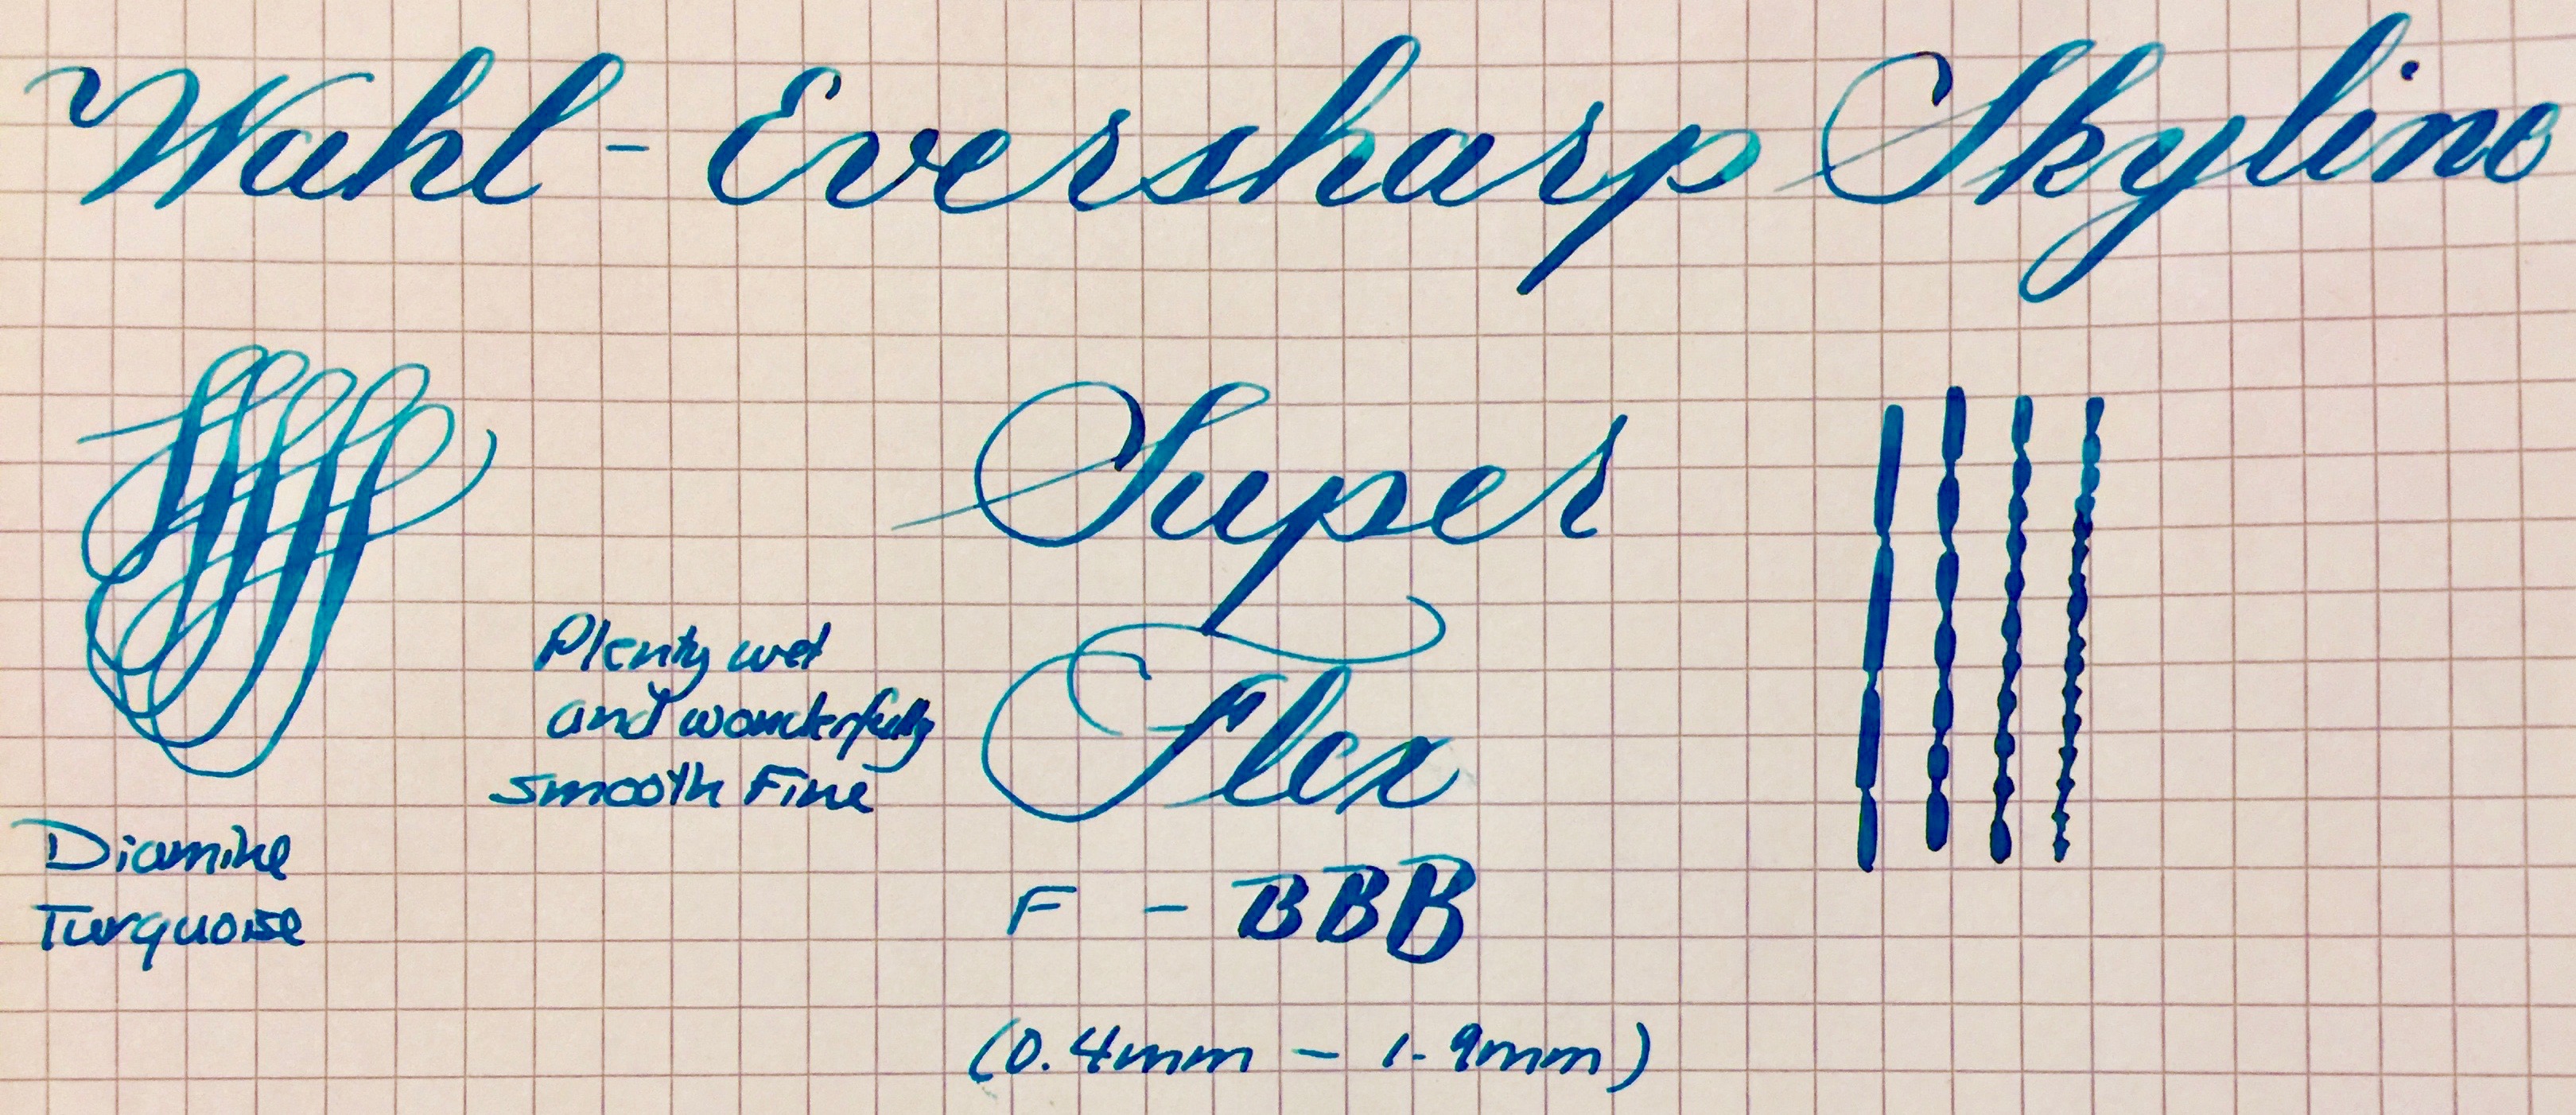 Wahl-Eversharp Skyline
Super
Flex
Plenty wet
and wonderfully
smooth Fine
Diamine
Turquoise
F - BBB
(0.4mm - 1.9mm)